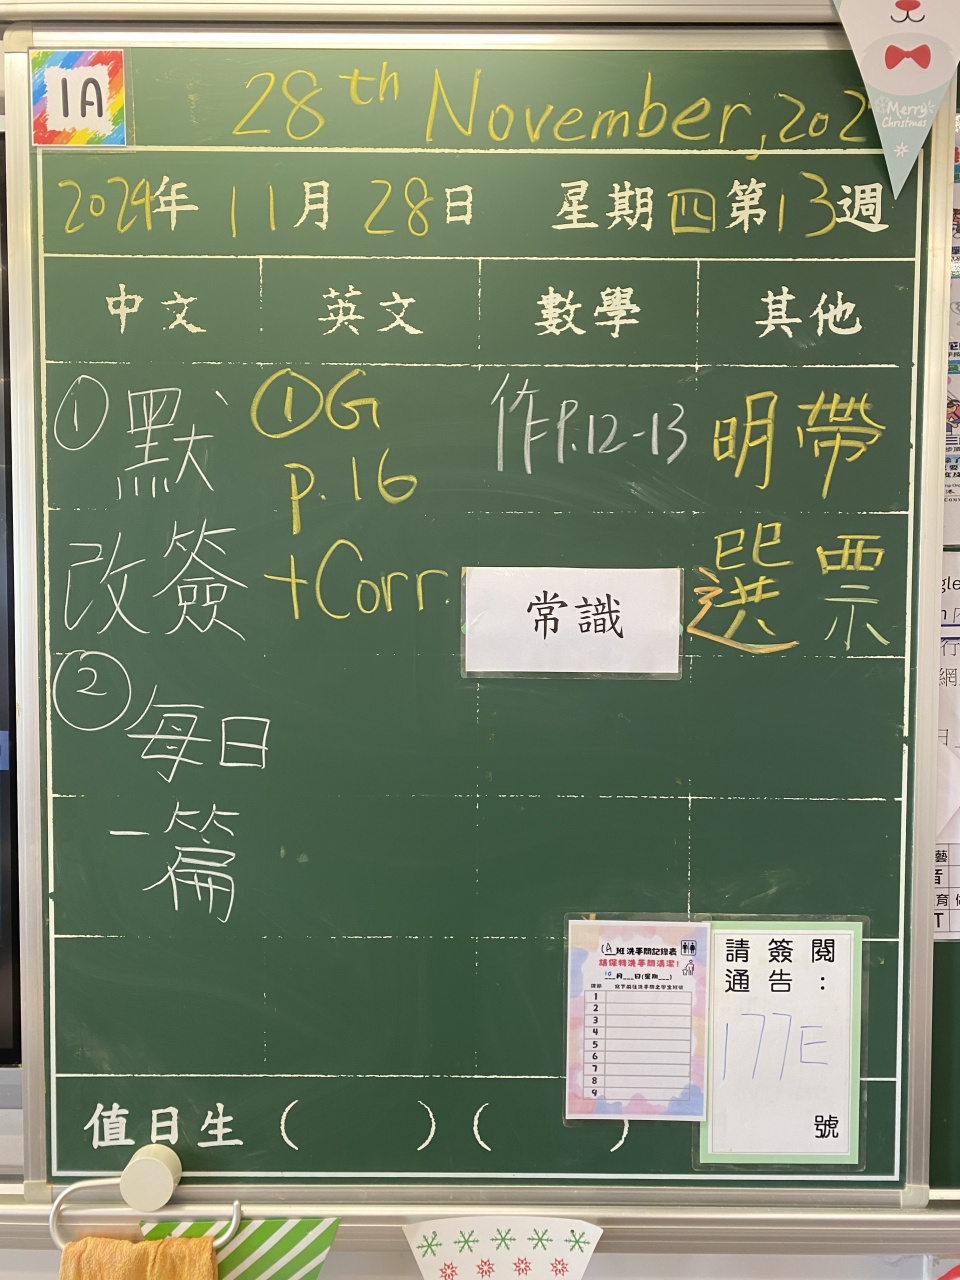 1A
28th November, 202
2024年 11月 28日 星期四 第13週
中文 英文 數學 其他
①默、
改簽
②每日
一篇
①G
p.16
+Corr.
作P.12-13
常識
明帶
選票
1A班洗手間記錄表
請保持洗手間清潔!
10月__日(星期__)
1
2
3
4
5
6
7
8
9
請簽閱
通告:
177E
號
值日生 ( ) ( )
Merry
Christmas